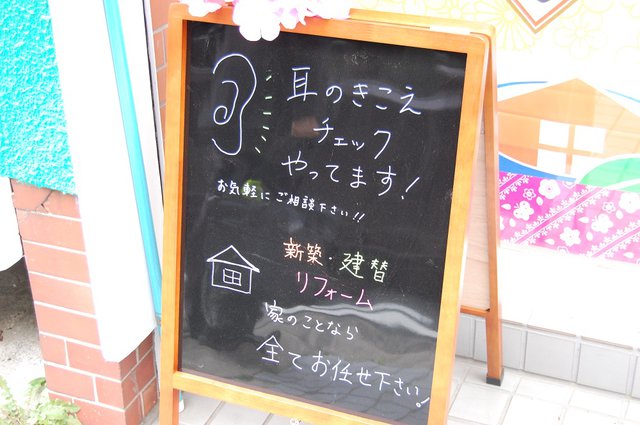 耳のきこえ
チェック
やってます!
お気軽にご相談下さい!!
新築・建替
リフォーム
家のことなら
全てお任せ下さい!